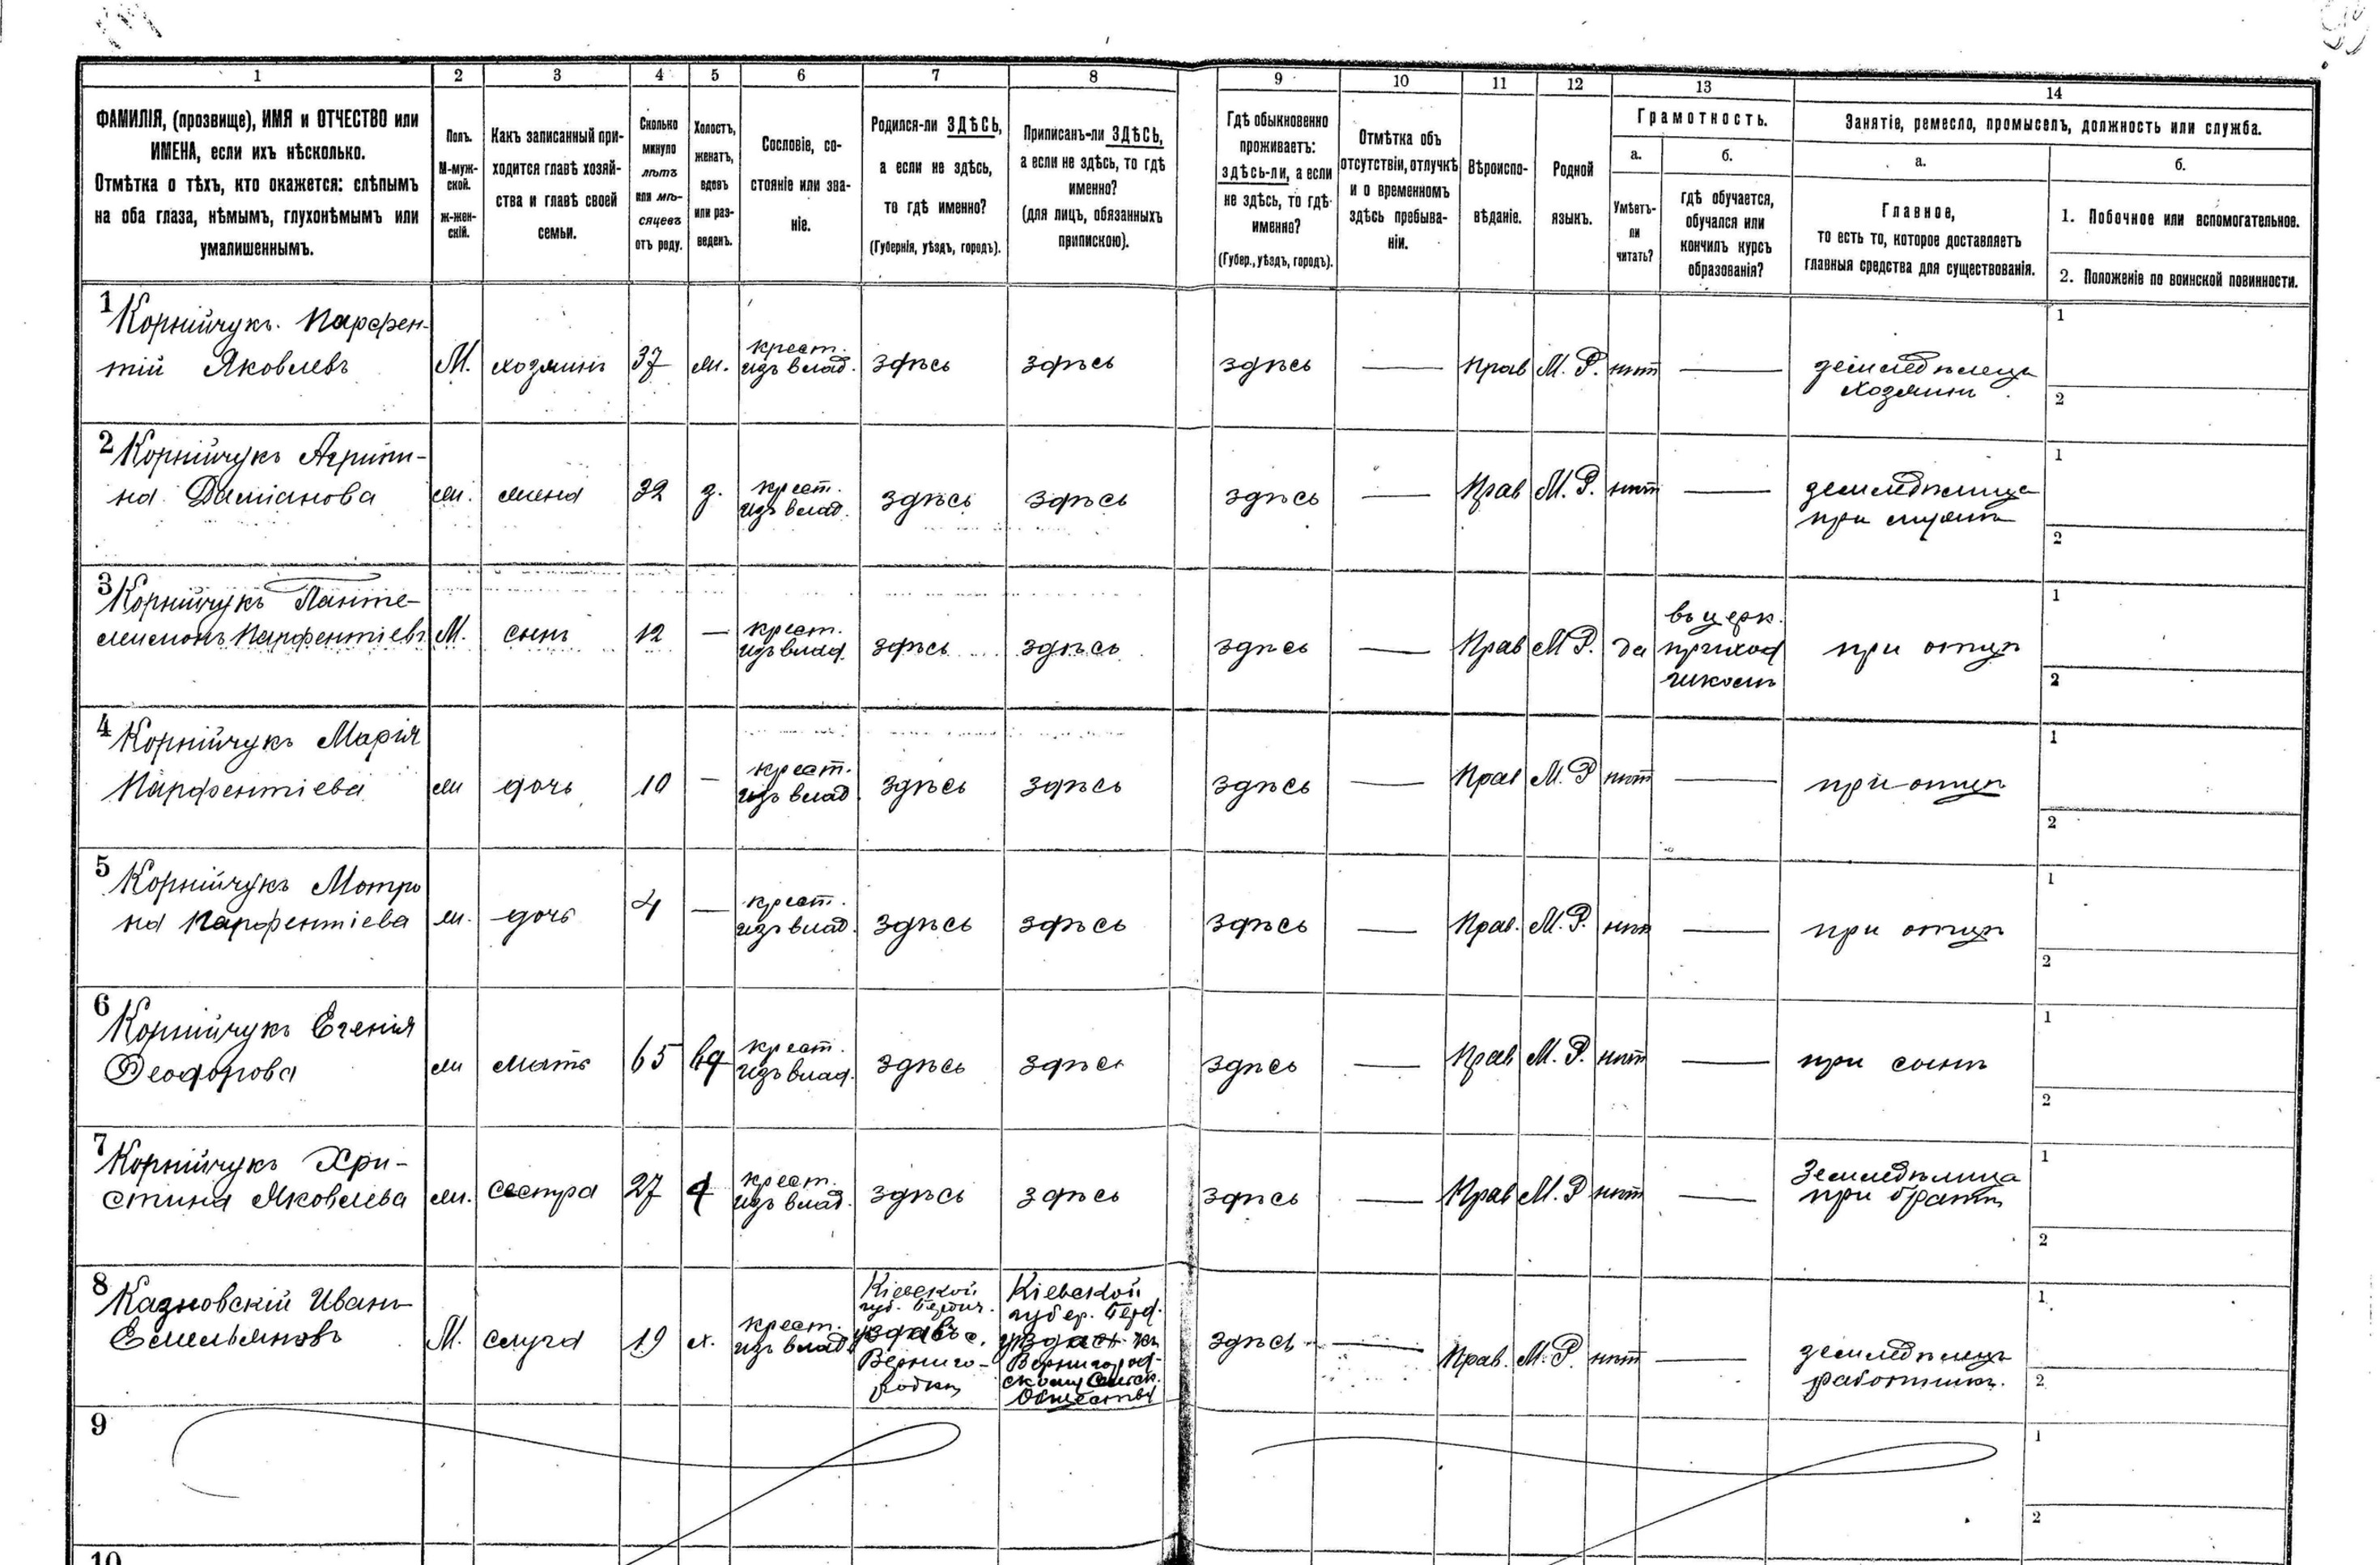 1 2 3 4 5 6 7 8 9 10 11 12 13 14
ФАМИЛІЯ, (прозвище), ИМЯ и ОТЧЕСТВО или
ИМЕНА, если ихъ нѣсколько.
Отмѣтка о тѣхъ, кто окажется: слѣпымъ
на оба глаза, нѣмымъ, глухонѣмымъ или
умалишеннымъ.
Полъ.
М-муж-
ской.
ж-жен-
скій.
Какъ записанный при-
ходится главѣ хозяй-
ства и главѣ своей
семьи.
Сколько
минуло
лѣтъ
или мѣ-
сяцевъ
отъ роду.
Холостъ,
женатъ,
вдовъ
или раз-
веденъ.
Сословіе, со-
стояніе или зва-
ніе.
Родился-ли ЗДѢСЬ,
а если не здѣсь,
то гдѣ именно?
(Губернія, уѣздъ, городъ).
Приписанъ-ли ЗДѢСЬ,
а если не здѣсь, то гдѣ
именно?
(для лицъ, обязанныхъ
припискою).
Гдѣ обыкновенно
проживаетъ:
здѣсь-ли, а если
не здѣсь, то гдѣ
именно?
(Губер., уѣздъ, городъ).
Отмѣтка объ
отсутствіи, отлучкѣ
и о временномъ
здѣсь пребыва-
ніи.
Вѣроиспо-
вѣданіе.
Родной
языкъ.
Грамотность.
а.
Умѣетъ-
ли
читать?
б.
гдѣ обучается,
обучался или
кончилъ курсъ
образованія?
Занятіе, ремесло, промыселъ, должность или служба.
а.
Главное,
то есть то, которое доставляетъ
главныя средства для существованія.
б.
1. Побочное или вспомогательное.
2. Положеніе по воинской повинности.
1 Корнійчукъ Парфен-
тій Яковлевъ
М. хозяинъ 37 ж. крест.
изъ влад. здѣсь здѣсь здѣсь — Прав М. Р. нѣт — земледѣлецъ
хозяинъ
1
2
2 Корнійчукъ Агрипи-
на Даміанова
ж. жена 32 з. крест.
изъ влад. здѣсь здѣсь здѣсь — Прав М. Р. нѣт — земледѣлица
при мужѣ
1
2
3 Корнійчукъ Панте-
леймонъ Парфентіевъ
М. сынъ 12 — крест.
изъ влад. здѣсь здѣсь здѣсь — Прав М Р. да въ церк.
приход
школѣ
при отцѣ
1
2
4 Корнійчукъ Марія
Парфентіева
ж дочь 10 — крест.
изъ влад. здѣсь здѣсь здѣсь — Прав М. Р нѣт — при отцѣ
1
2
5 Корнійчукъ Мотро
на Парфентіева
ж. дочь 4 — крест.
изъ влад. здѣсь здѣсь здѣсь — Прав. М. Р. нѣт — при отцѣ
1
2
6 Корнійчукъ Евгенія
Ѳеодорова
ж мать 65 вд крест.
изъ влад. здѣсь здѣсь здѣсь — Прав М. Р. нѣт — при сынѣ
1
2
7 Корнійчукъ Хри-
стина Яковлева
ж. сестра 27 д крест.
изъ влад. здѣсь здѣсь здѣсь — Прав М. Р нѣт — Земледѣлица
при братѣ
1
2
8 Казновскій Иванъ
Емельяновъ
М. слуга 19 х. крест.
изъ влад.
Кіевской
губ. Бердич.
Верниго-
родки
Кіевской
губер. Берд.
Вернигород-
скому Сельск.
Обществу
здѣсь — Прав. М. Р. нѣт — земледѣлецъ
работникъ.
1
2
9
1
2
10